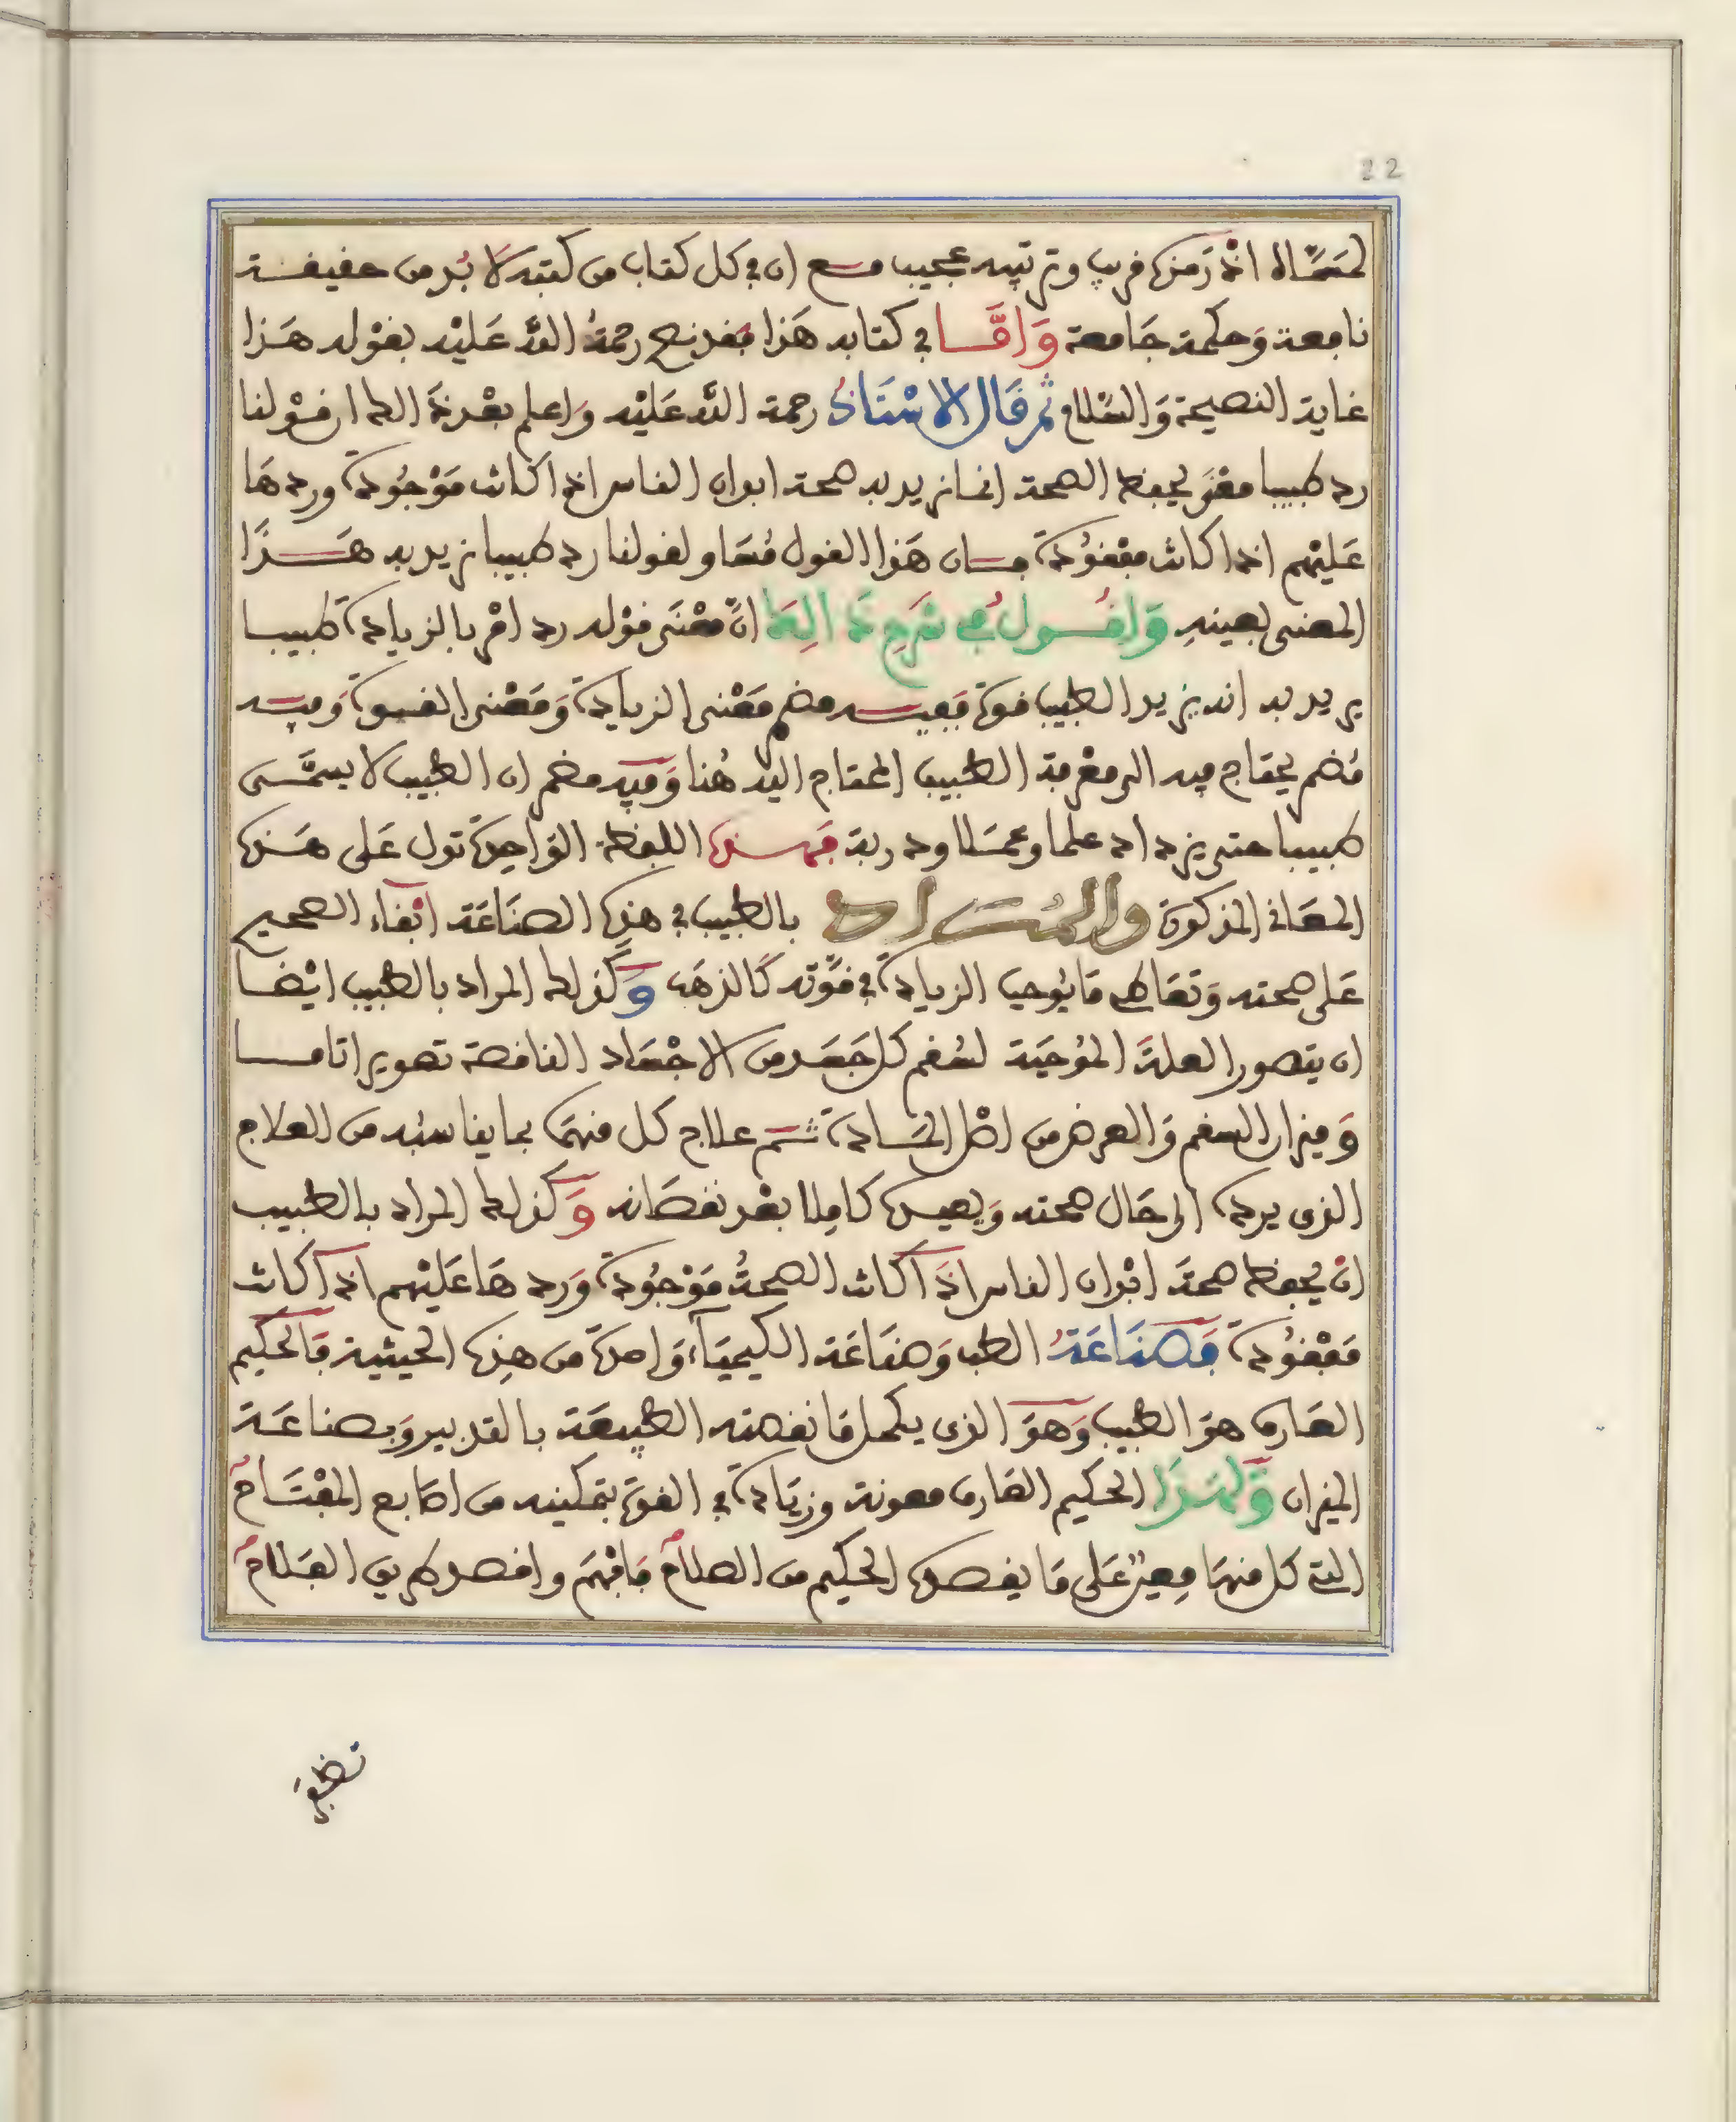 22
اذ رمزه قريب وترتيبه عجيب مع ان في كل كتاب من كتبه لا بد من حقيقة
نافعة وَحكمة جَامعة وَامَّا في كتابه هَذا فقد نصح رحمةُ اللَّه عَلَيْه بقوْله هَذا
غاية النصيحة وَالسَّلام ثم قَال الاسْتَاذُ رحمة اللَّه عَليْه وَاعلم بعْد ذَلك ان قوْلنا
رد طبيبا معْنَى يحفظ الصحة انما نريد به صحة ابدان الناس اذا كانت مَوْجُودة وردهَا
عَليْهم اذا كانت مفقوُدة فسان هَذا القول مُسَاو لقولنا رد طبيبا نريد به هَذَا
المعنى بعينهِ وَاقُول في شَرح ذَلك انَّ معْنَى قوْله رد امْر بالزيادة طبيبا
يريد به انه يزيد الطبيب قوة فَفيه مضمر مَعْنى الزيادة وَمَعْنى القوة وَفيه
مُضمر يحتاج فيه الى معْرفة الطبيب المحتاج اليه هُنا وَفيه مضمر ان الطبيب لا يسمَّى
طبيبا حتى يزداد علما وعمَلا ودربة فهذه اللفظة الوَاحِدة تدل عَلى هَذه
المعَاني المذكورة والمُرَاد بالطبيب في هذه الصنَاعَة ابْقاء الصحيح
عَلى صحته وَتعَاطى مَا يُوجب الزيادة في قوَّته كَالذهَب وَكَذلك المراد بالطبيب ايْضا
ان يتصور العلةَ الموُجبَة لسُقم كل جَسَد من الاجْسَاد الناقصة تصويرا تاما
وَميزان السقم وَالعرض من اصْل المَادة ثم علاج كل منهمَا بما يناسبُه من العلاج
الذى يرده الى حَال صحته وَيصيره كامِلا بعْد نقصَانه وَكَذلك المراد بالطبيب
انْ يحفظ صحةَ ابْدان الناس اذَا كانت الصحةُ مَوْجُودة وَردهَا عَليْهم اذا كانت
مَفْقوُدة فَصنَاعَةُ الطب وَصنَاعَة الكيميَاء وَاحدة من هذِه الحيثية فَالحكيم
العَارف هوَ الطبيب وَهوَ الذى يكمل مَا نقصته الطبيعَة بالتدبير وَبصناعَة
الميزان وَلهَذَا الحكيم العَارف معونة وزيَادة في القوة بتمكينه من اصَابع المفْتَاح
التي كل منهَا معِينٌ عَلى مَا يقصده الحكيم من الصلاح فَافْهَم واقصد طريق الفَلاح